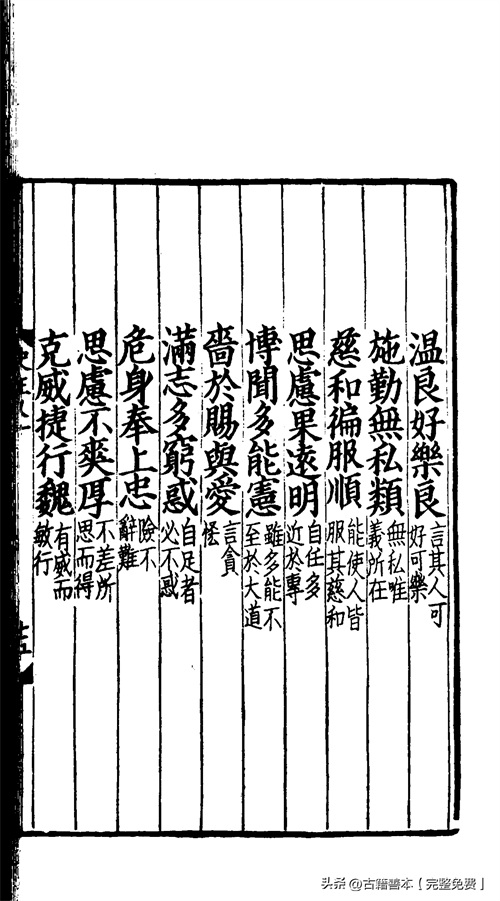 温良好樂良言其人可好可樂
施勤無私類無私唯義所在
慈和徧服順能使人皆服其慈和
思慮果遠明自任多近於專
博聞多能憲雖多能不至於大道
嗇於賜與愛言貪悋
滿志多窮惑自足者必不惑
危身奉上忠險不辭難
思慮不爽厚不差所思而得
克威捷行魏有威而敏行
十五
头条@古籍善本【完整免费】